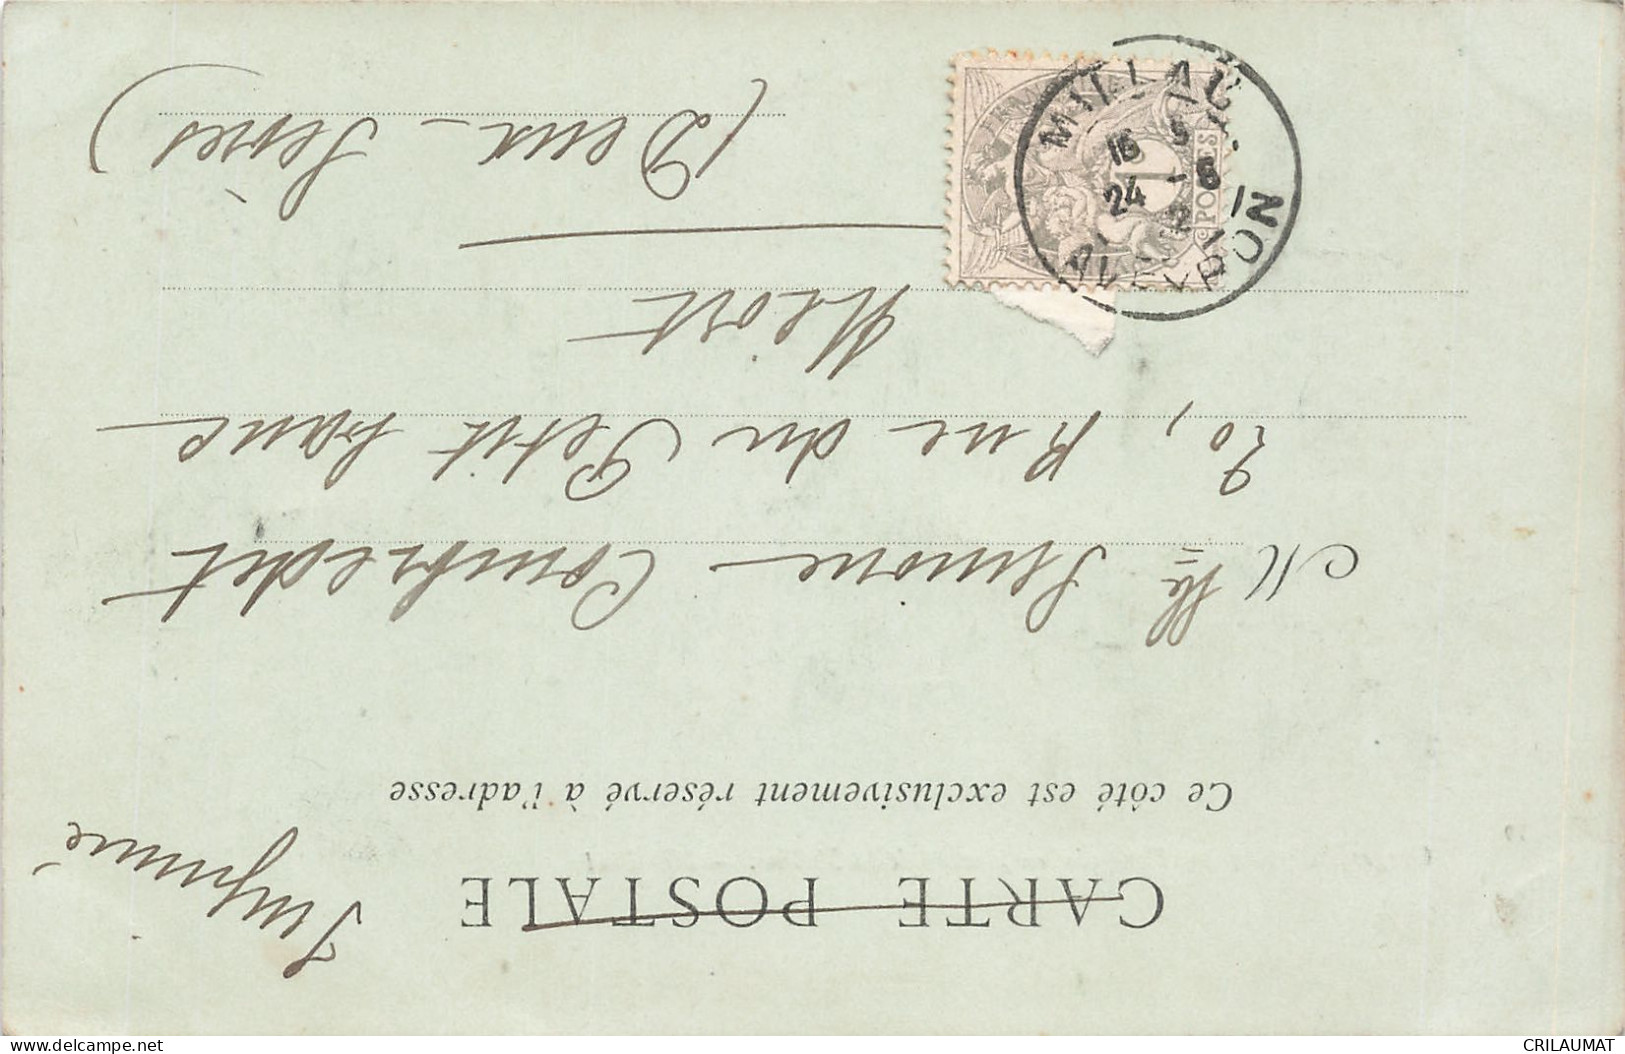 CARTE POSTALE
Imprimé
Ce côté est exclusivement réservé à l'adresse
Mlle Simone Combredet
20, Rue du Petit banc
Niort
(Deux-Sèvres)
MILLAU
16 5
24 -6
AVEYRON
POSTES
1
delcampe.net
CRILAUMAT